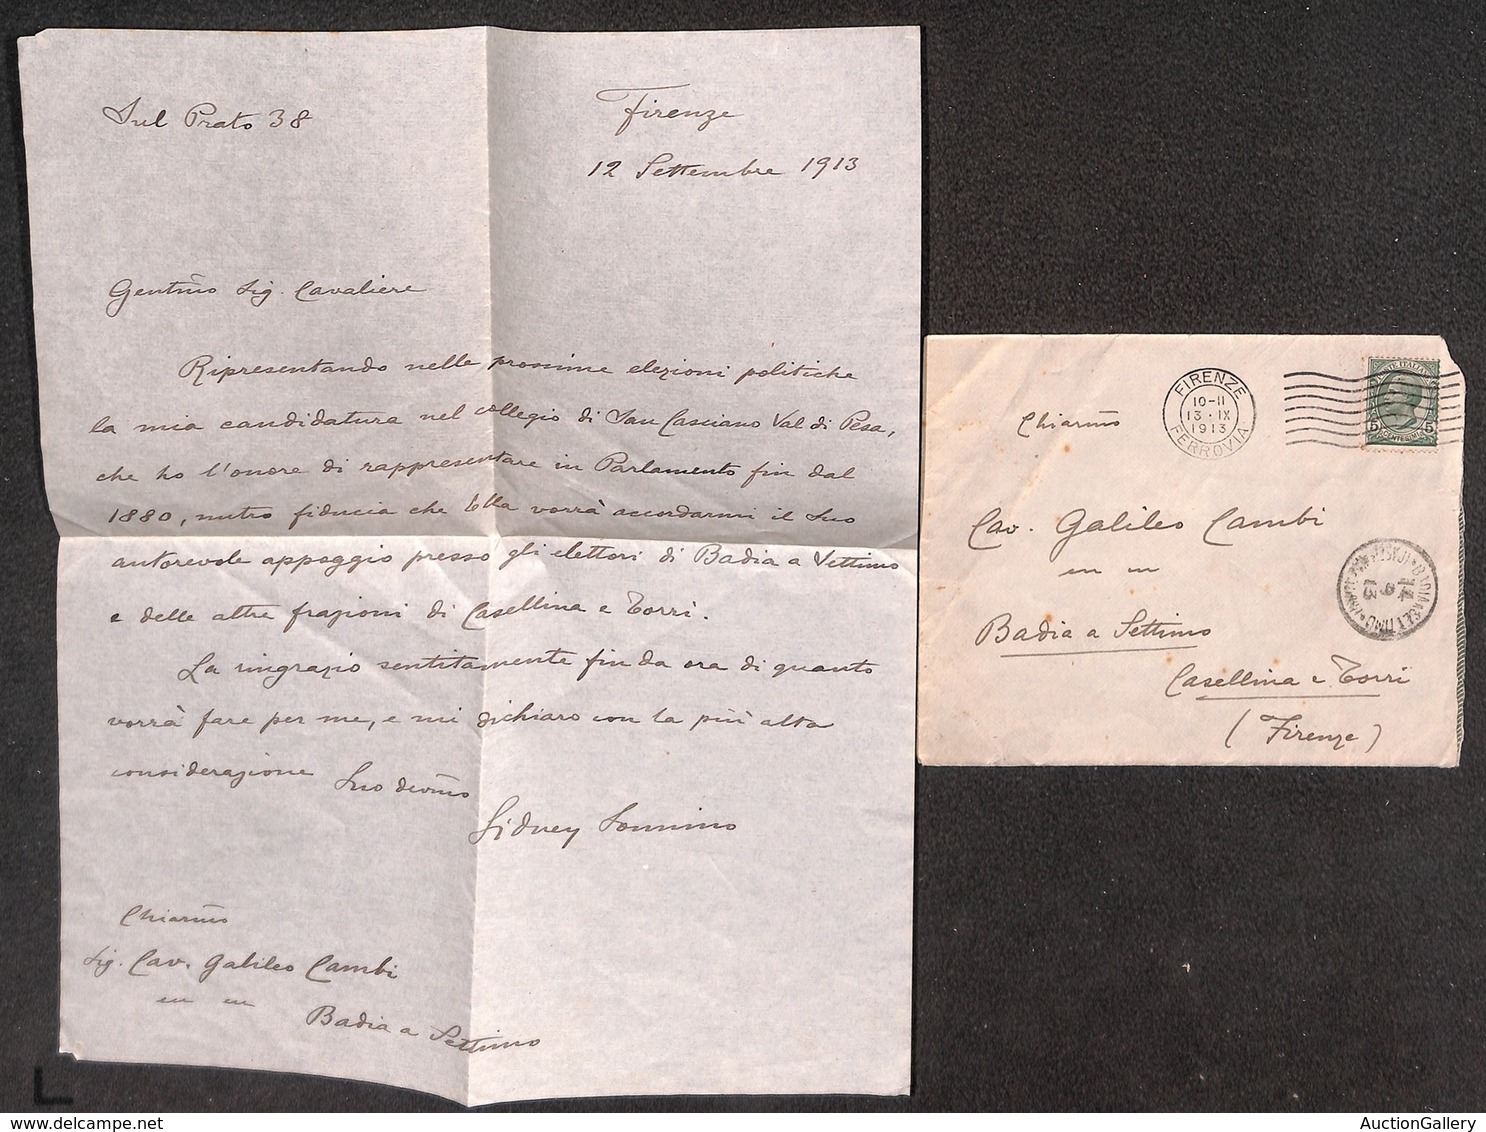 Sul Prato 38
Firenze
12 Settembre 1913
Gentmo Sig. Cavaliere
Ripresentando nelle prossime elezioni politiche
la mia candidatura nel collegio di San Casciano Val di Pesa,
che ho l'onore di rappresentare in Parlamento fin dal
1880, nutro fiducia che Ella vorrà accordarmi il Suo
autorevole appoggio presso gli elettori di Badia a Settimo
e delle altre frazioni di Casellina e Torri.
La ringrazio sentitamente fin da ora di quanto
vorrà fare per me, e mi dichiaro con la più alta
considerazione Suo devmo
Sidney Sonnino
Chiarmo
Sig. Cav. Galileo Cambi
Badia a Settimo
FIRENZE
10-11
13·IX
1913
FERROVIA
POSTE ITALIANE
5 5
CENTESIMI
Chiarmo
Cav. Galileo Cambi
Badia a Settimo
Casellina e Torri
(Firenze)
BADIA A SETTIMO
14
9
13
AuctionGallery